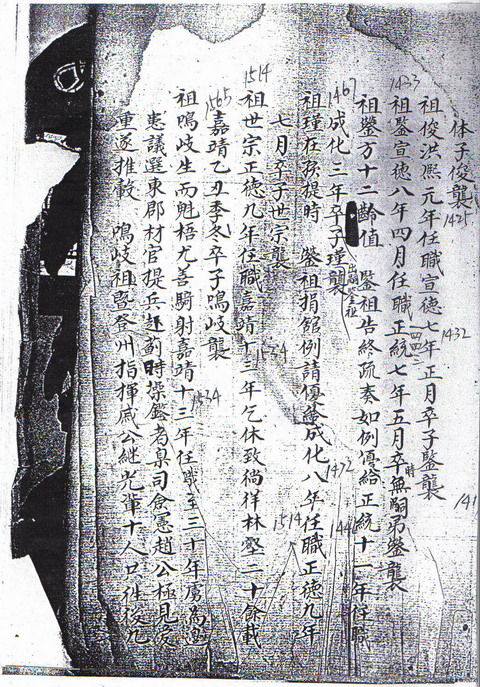 体子俊襲
1425
祖俊洪熙元年任職宣德七年正月卒子鍳襲
1432
1433
祖鍳宣德八年四月任職正統七年五月卒時無嗣弟鎣襲
一四四二
祖鎣方十二齡值 鍳祖告終疏奏如例優給正統十一年任職
1467
成化三年卒子瑾襲
祖瑾在孩提時 鎣祖捐館例請優給成化八年任職正德九年
1472
七月卒子世宗襲
1514
1514
祖世宗正德九年任職嘉靖十三年乞休致徜徉林壑二十餘載
1534
1565
嘉靖乙丑季冬卒子鳴岐襲
祖鳴岐生而魁梧尤善騎射嘉靖十三年任職至三十年虜為邊
1534
憲議選東郡材官提兵赴薊時操鑒者臬司僉憲趙公極見愛
重遂推轂 鳴岐祖暨登州指揮戚公継光輩十人